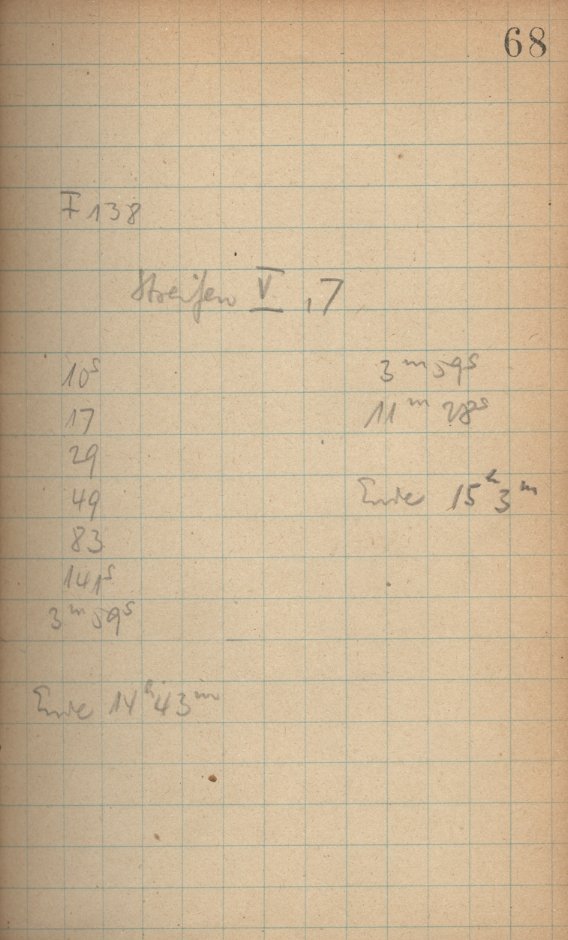 68
I 138
Streifen V, 7
10ˢ
17
29
49
83
141ˢ
3ᵐ 59ˢ
Ende 14ʰ 43ᵐ
3ᵐ 59ˢ
11ᵐ 28ˢ
Ende 15ʰ 3ᵐ